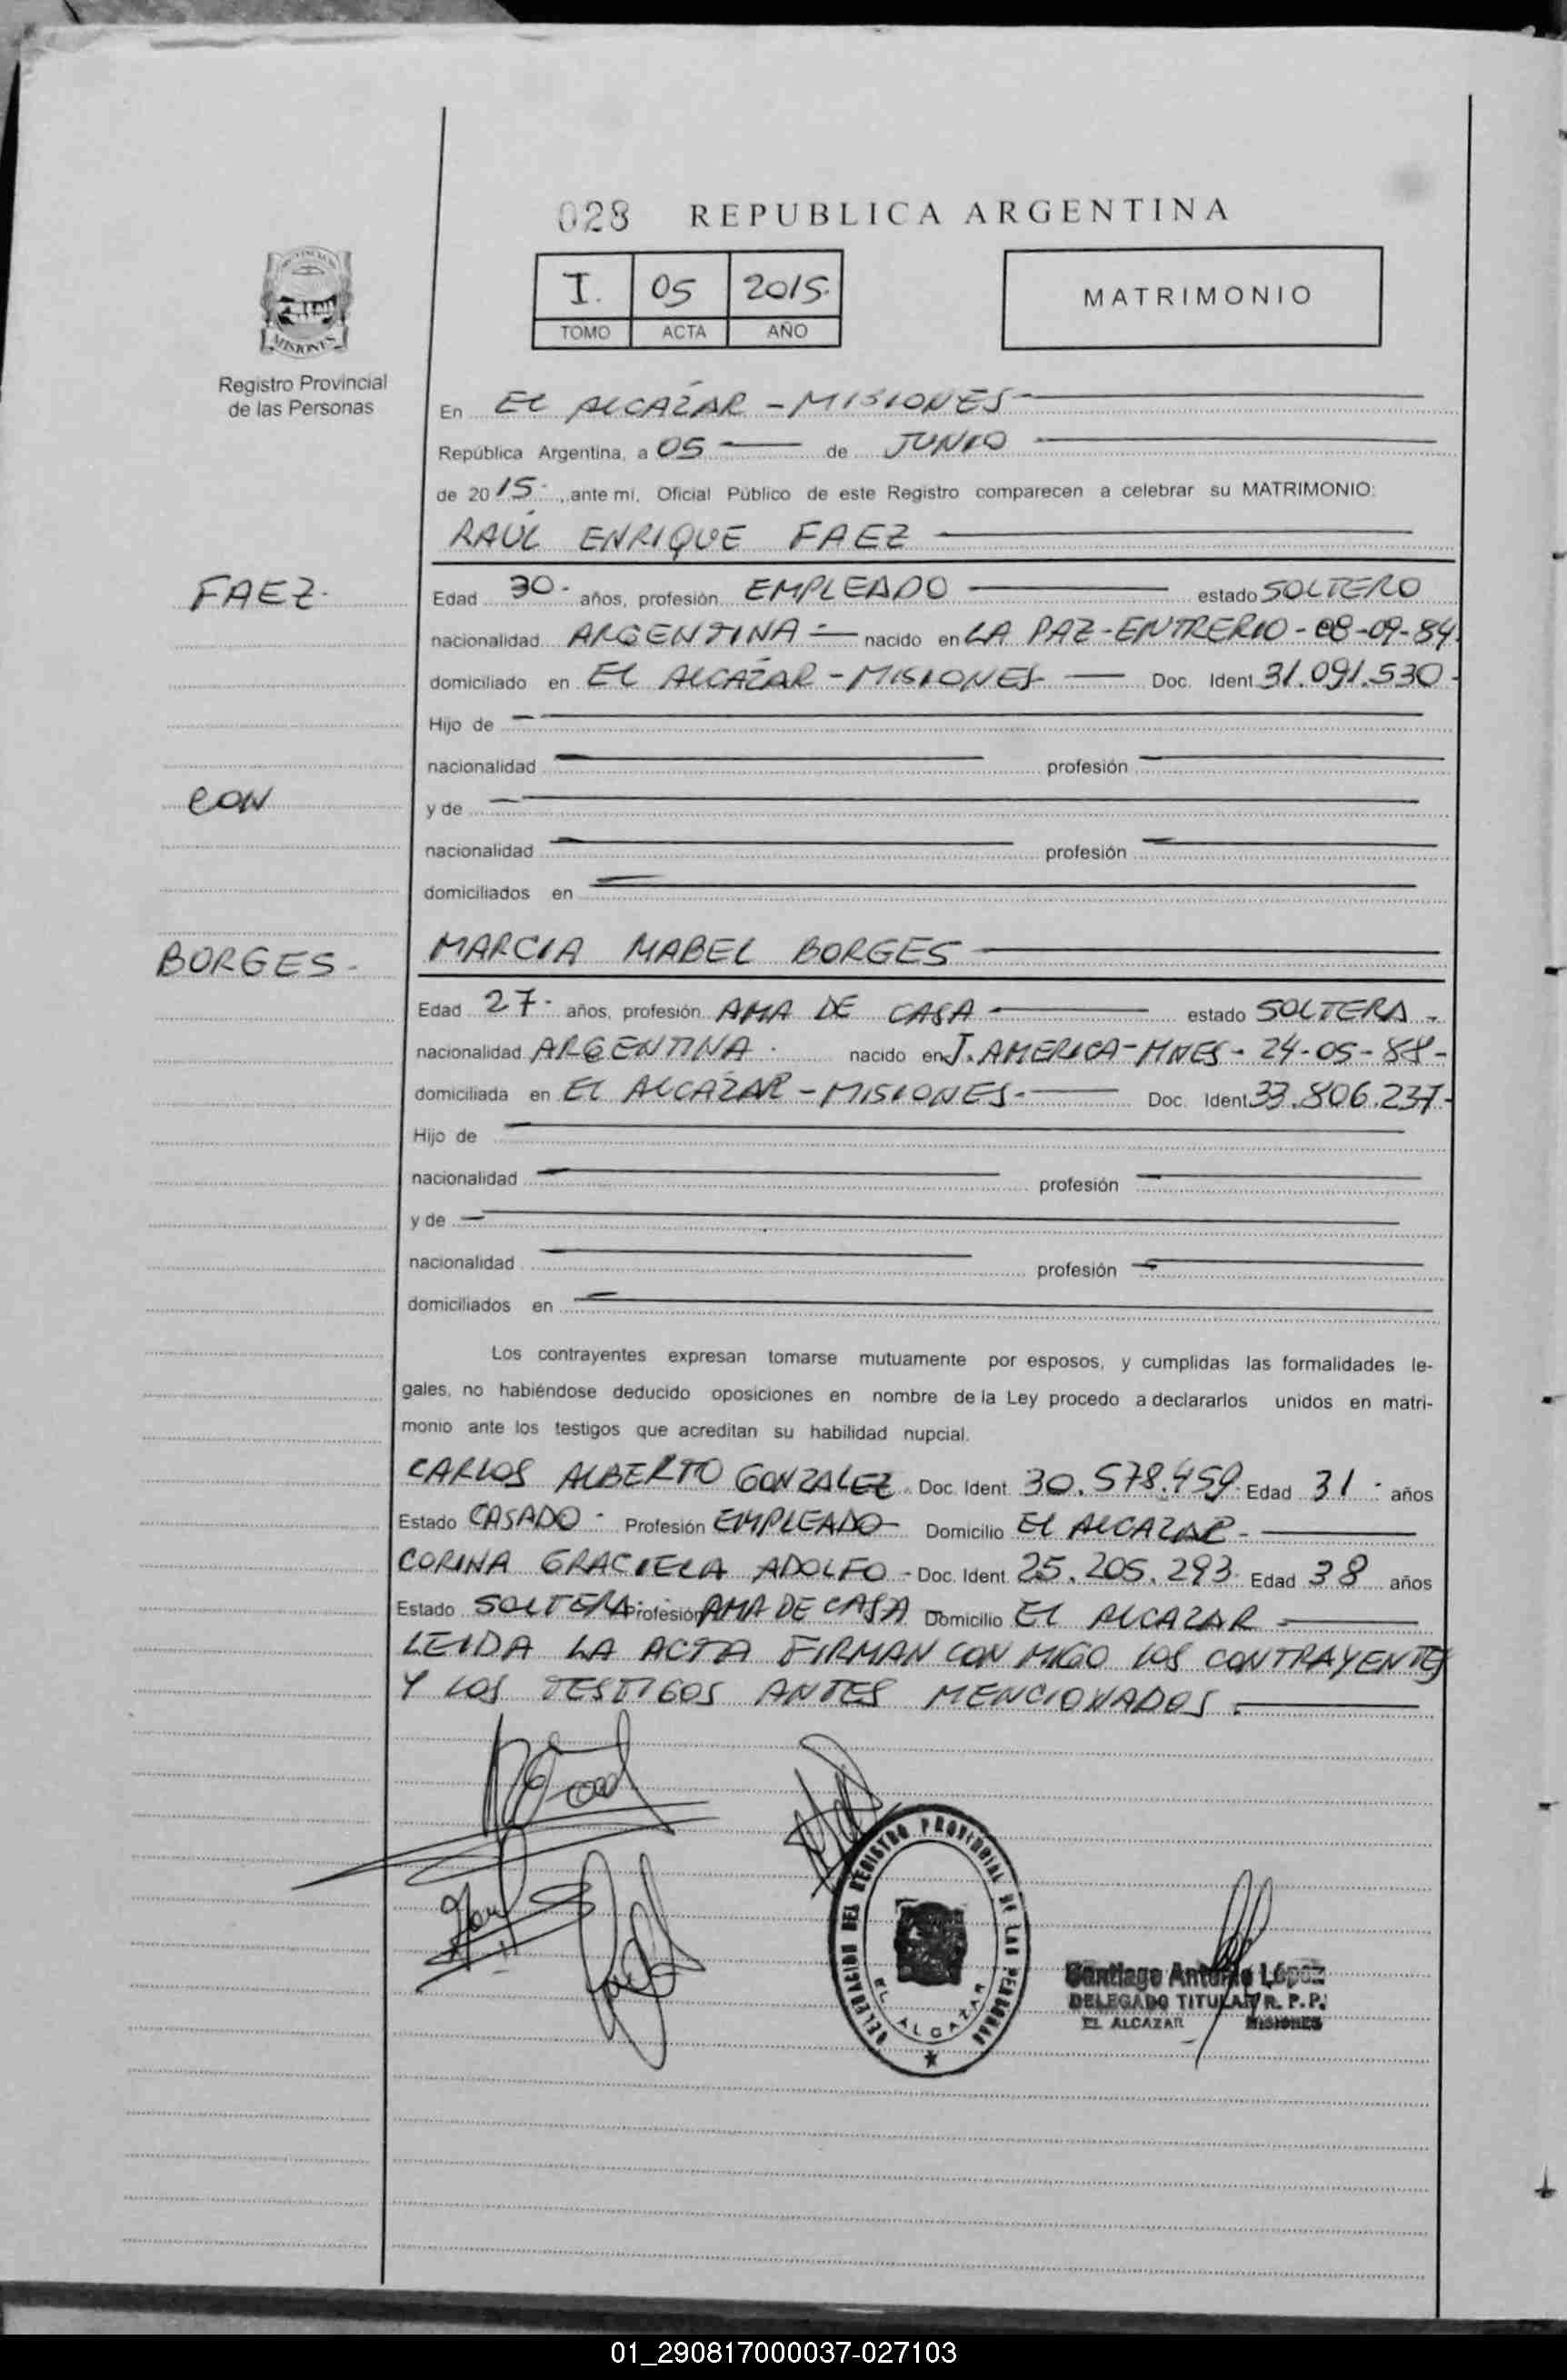 028 REPUBLICA ARGENTINA
I. 05 2015.
TOMO ACTA AÑO
MATRIMONIO
MISIONES
Registro Provincial
de las Personas
En EL ALCAZAR - MISIONES
República Argentina, a 05 de JUNIO
de 2015. , ante mi, Oficial Público de este Registro comparecen a celebrar su MATRIMONIO:
RAÚL ENRIQUE FAEZ
FAEZ.
Edad 30- años, profesión EMPLEADO estado SOLTERO
nacionalidad ARGENTINA - nacido en LA PAZ - ENTRERIO - 08-09-84.
domiciliado en EL ALCAZAR - MISIONES - Doc. Ident. 31.091.530-
Hijo de
nacionalidad profesión
CON
y de
nacionalidad profesión
domiciliados en
BORGES -
MARCIA MABEL BORGES
Edad 27- años, profesión AMA DE CASA estado SOLTERA -
nacionalidad ARGENTINA . nacido en J. AMERICA - MNES - 24-05-88-
domiciliada en EL ALCAZAR - MISIONES - Doc. Ident. 33.806.237.-
Hijo de
nacionalidad profesión
y de
nacionalidad profesión
domiciliados en
Los contrayentes expresan tomarse mutuamente por esposos, y cumplidas las formalidades le-
gales, no habiéndose deducido oposiciones en nombre de la Ley procedo a declararlos unidos en matri-
monio ante los testigos que acreditan su habilidad nupcial.
CARLOS ALBERTO GONZALEZ Doc. Ident. 30.578.459. Edad 31 - años
Estado CASADO - Profesión EMPLEADO - Domicilio EL ALCAZAR -
CORINA GRACIELA ADOLFO - Doc. Ident. 25.205.293. Edad 38 años
Estado SOLTERA. Profesión AMA DE CASA Domicilio EL ALCAZAR -
LEIDA LA ACTA FIRMAN CON MIGO LOS CONTRAYENTES
Y LOS TESTIGOS ANTES MENCIONADOS .
DELEGACION DEL REGISTRO PROVINCIAL DE LAS PERSONAS
EL ALCAZAR
Santiago Antonio López
DELEGADO TITULAR R. P. P.
EL ALCAZAR MISIONES
01_290817000037-027103